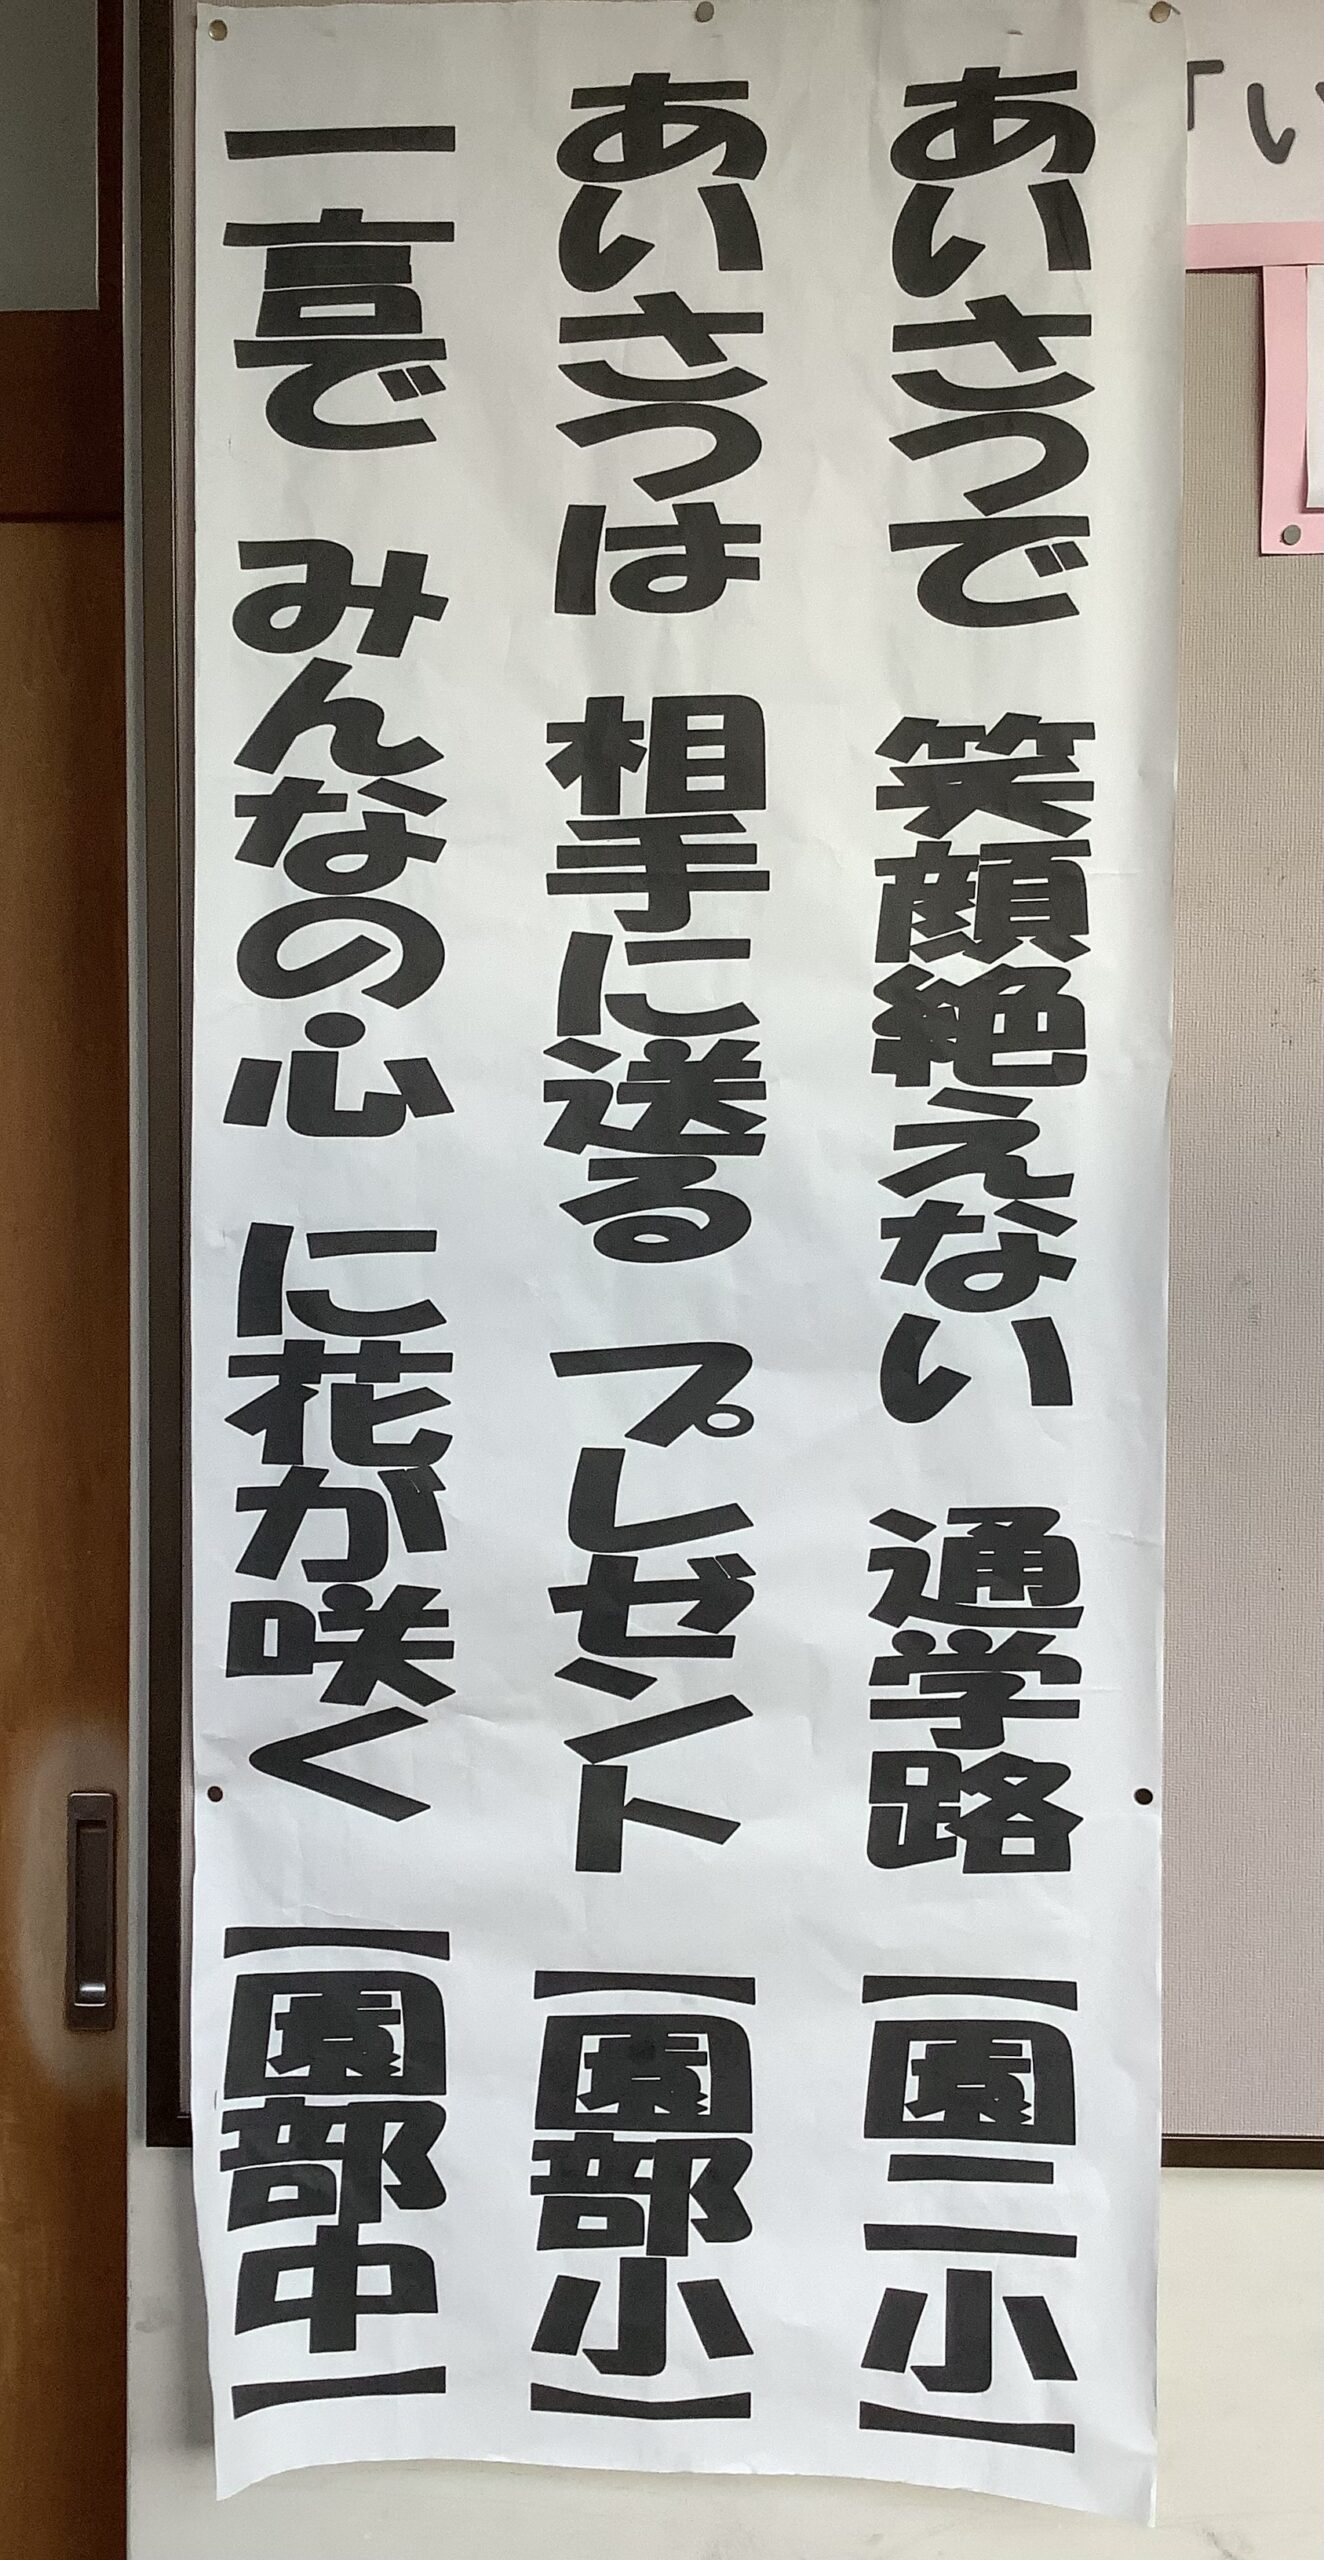 あいさつで 笑顔絶えない 通学路 【園二小】
あいさつは 相手に送る プレゼント 【園部小】
一言で みんなの心 に花が咲く 【園部中】
「い